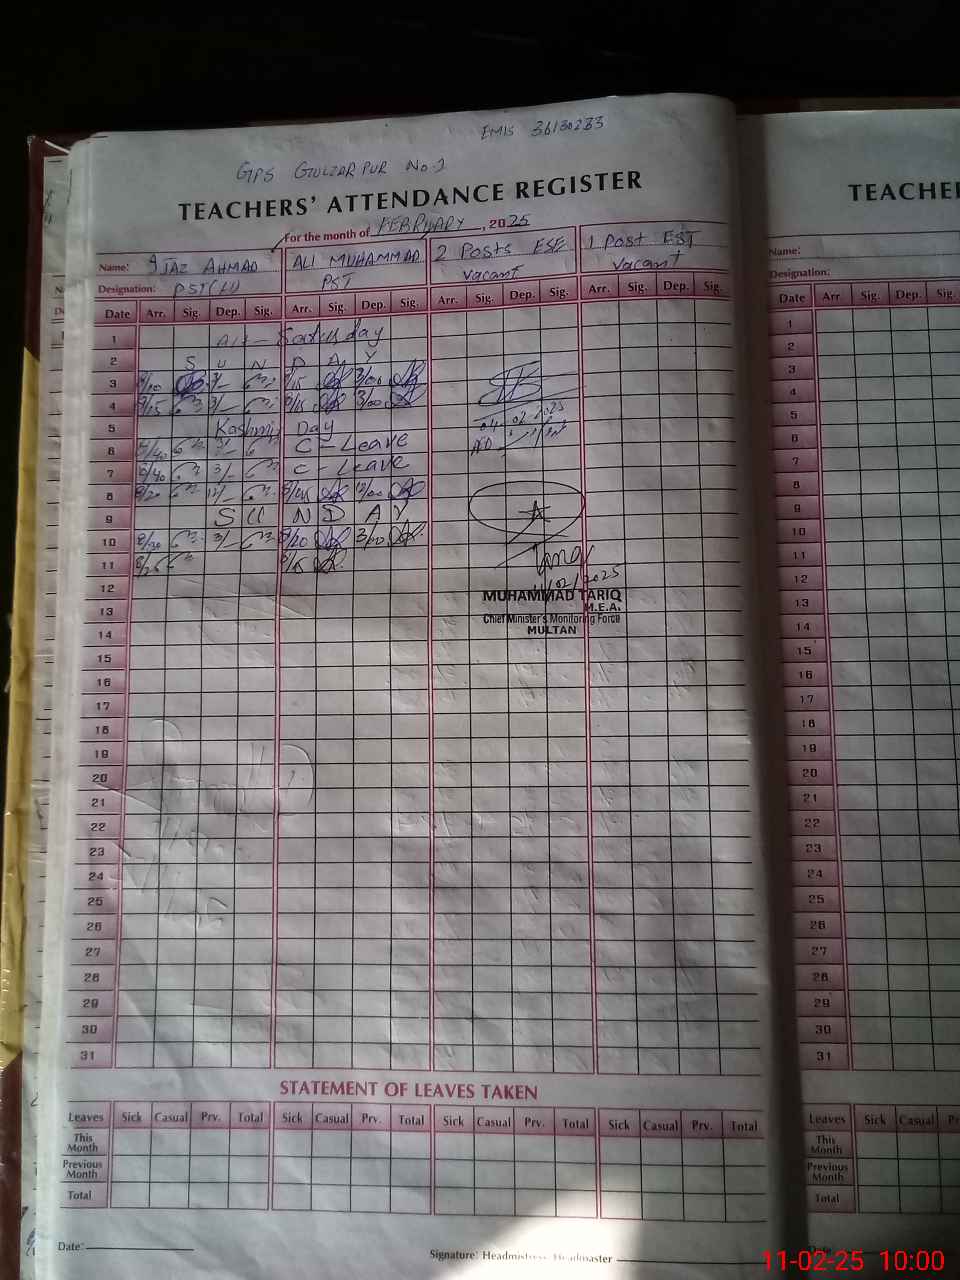 EMIS 36130233
GPS GULZAR PUR No. 1
TEACHERS' ATTENDANCE REGISTER
For the month of FEBRUARY, 2025
Name: IJAZ AHMAD ALI MUHAMMAD 2 Posts ESE 1 Post EST
Designation: PST PST vacant vacant
Date Arr. Sig. Dep. Sig. Arr. Sig. Dep. Sig. Arr. Sig. Dep. Sig. Arr. Sig. Dep. Sig.
1 Saturday
2 S U N D A Y
3 8/15 3/00
4 8/15 3/- 8/15 3/00
5 Kashmir Day
6 8/40 3/- C-Leave
7 8/40 3/- C-Leave
8 8/20 12/- 12/00
9 S U N D A Y
10 8/20 3/- 8/20 3/00
11 8/25 8/15
04-02-2025
11/02/2025
MUHAMMAD TARIQ
M.E.A.
Chief Minister's Monitoring Force
MULTAN
12
13
14
15
16
17
18
19
20
21
22
23
24
25
26
27
28
29
30
31
STATEMENT OF LEAVES TAKEN
Leaves Sick Casual Prv. Total Sick Casual Prv. Total Sick Casual Prv. Total Sick Casual Prv. Total
This Month
Previous Month
Total
Date:
Signature: Headmistress Headmaster
TEACHE
Name:
Designation:
Date Arr Sig. Dep. Sig.
1
2
3
4
5
6
7
8
9
10
11
12
13
14
15
16
17
18
19
20
21
22
23
24
25
26
27
28
29
30
31
Leaves Sick Casual
This Month
Previous Month
Total
11-02-25 10:00